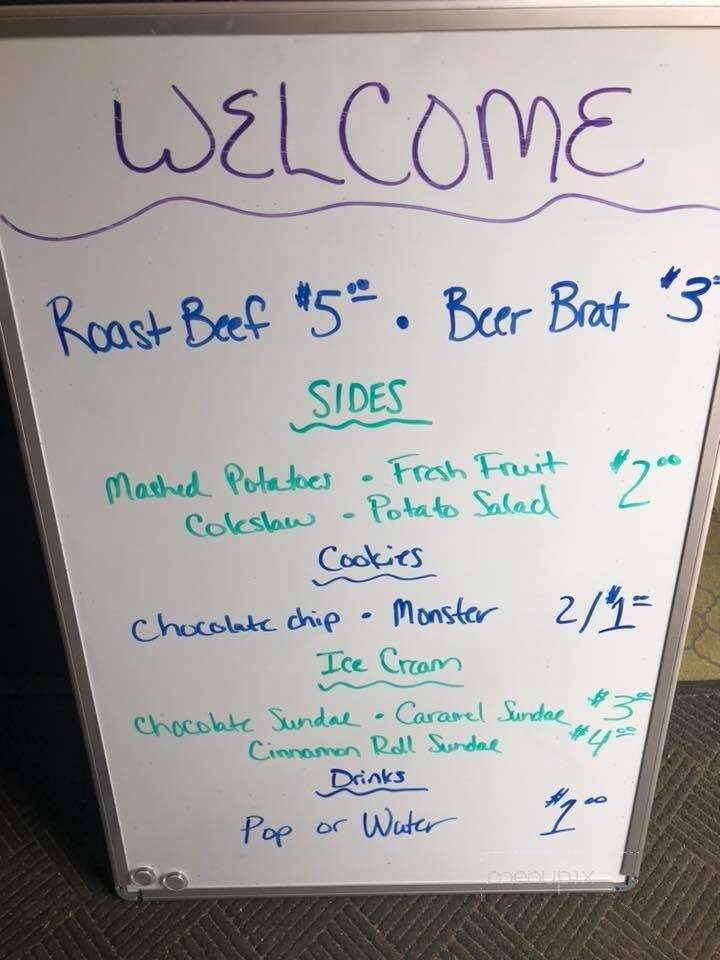 WELCOME
Roast Beef $5.00 • Beer Brat $3
SIDES
Mashed Potatoes • Fresh Fruit $2.00
Coleslaw • Potato Salad
Cookies
Chocolate chip • Monster 2/$1=
Ice Cream
Chocolate Sundae • Caramel Sundae $3.00
Cinnamon Roll Sundae $4.00
Drinks
Pop or Water $1.00
menupix